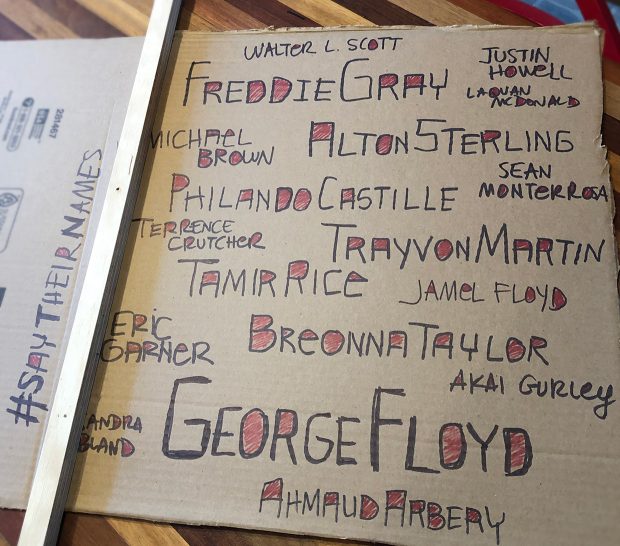 WALTER L. SCOTT
JUSTIN
HOWELL
FREDDIE GRAY
LAQUAN
MCDONALD
MICHAEL
BROWN
ALTON STERLING
SEAN
MONTERROSA
PHILANDO CASTILLE
TERRENCE
CRUTCHER
TRAYVON MARTIN
TAMIR RICE
JAMEL FLOYD
ERIC
GARNER
BREONNA TAYLOR
AKAI GURLEY
ANDRA
BLAND
GEORGE FLOYD
AHMAUD ARBERY
#SAYTHEIRNAMES